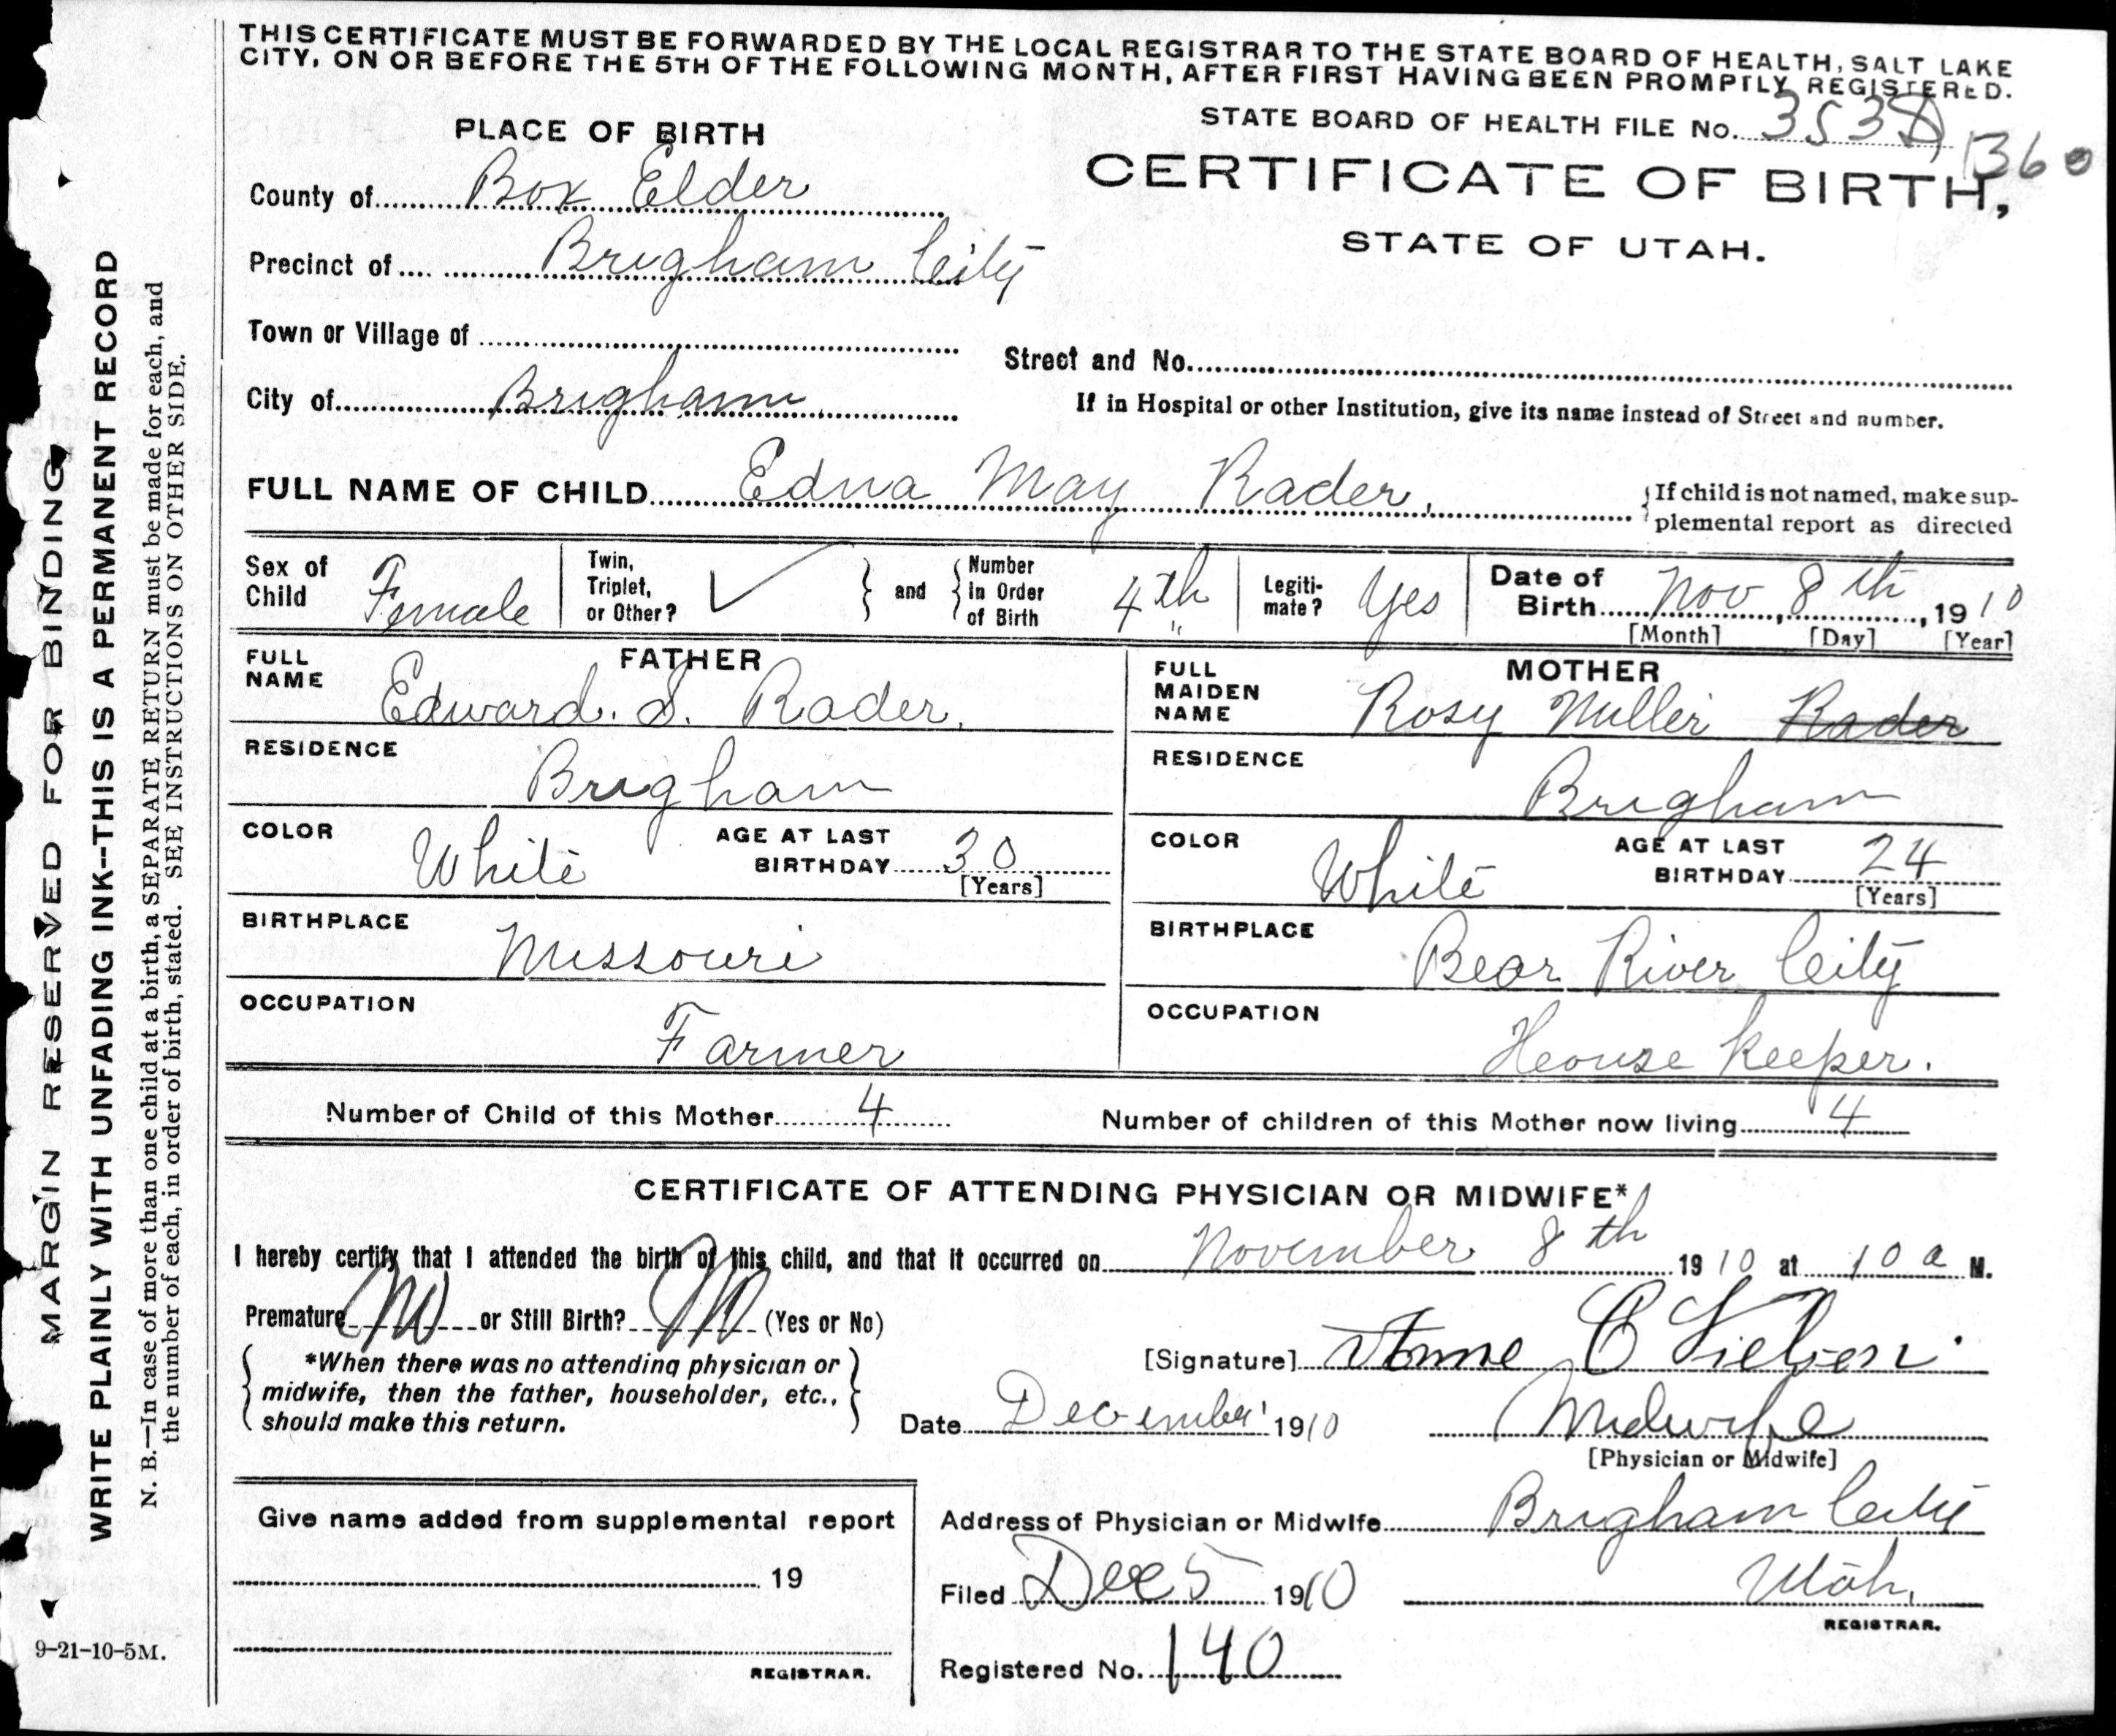 THIS CERTIFICATE MUST BE FORWARDED BY THE LOCAL REGISTRAR TO THE STATE BOARD OF HEALTH, SALT LAKE
CITY, ON OR BEFORE THE 5TH OF THE FOLLOWING MONTH, AFTER FIRST HAVING BEEN PROMPTLY REGISTERED.
STATE BOARD OF HEALTH FILE No. 353
1360
PLACE OF BIRTH
CERTIFICATE OF BIRTH,
STATE OF UTAH.
County of Box Elder
Precinct of Brigham City
Town or Village of
Street and No.
City of Brigham
If in Hospital or other Institution, give its name instead of Street and number.
FULL NAME OF CHILD Edna May Rader,
If child is not named, make sup-
plemental report as directed
Sex of Child Female
Twin, Triplet, or Other? ✓
and
Number in Order of Birth 4th
Legiti-mate? Yes
Date of Birth Nov 8th, 1910
[Month] [Day] [Year]
FATHER
FULL NAME Edward. S. Rader.
RESIDENCE Brigham
COLOR White
AGE AT LAST BIRTHDAY 30
[Years]
BIRTHPLACE Missouri
OCCUPATION Farmer
MOTHER
FULL MAIDEN NAME Rosy Miller Rader
RESIDENCE Brigham
COLOR White
AGE AT LAST BIRTHDAY 24
[Years]
BIRTHPLACE Bear River City
OCCUPATION House Keeper.
Number of Child of this Mother 4
Number of children of this Mother now living 4
CERTIFICATE OF ATTENDING PHYSICIAN OR MIDWIFE*
I hereby certify that I attended the birth of this child, and that it occurred on November 8th 1910 at 10 a M.
Premature No or Still Birth? No (Yes or No)
*When there was no attending physician or
midwife, then the father, householder, etc.,
should make this return.
[Signature] Anne C Nielsen.
Date December 1910
Midwife
[Physician or Midwife]
Give name added from supplemental report
19
REGISTRAR.
Address of Physician or Midwife Brigham City
Filed Dec 5 1910
Utah.
REGISTRAR.
Registered No. 140
MARGIN RESERVED FOR BINDING
WRITE PLAINLY WITH UNFADING INK--THIS IS A PERMANENT RECORD
N. B.—In case of more than one child at a birth, a SEPARATE RETURN must be made for each, and
the number of each, in order of birth, stated. SEE INSTRUCTIONS ON OTHER SIDE.
9-21-10-5M.